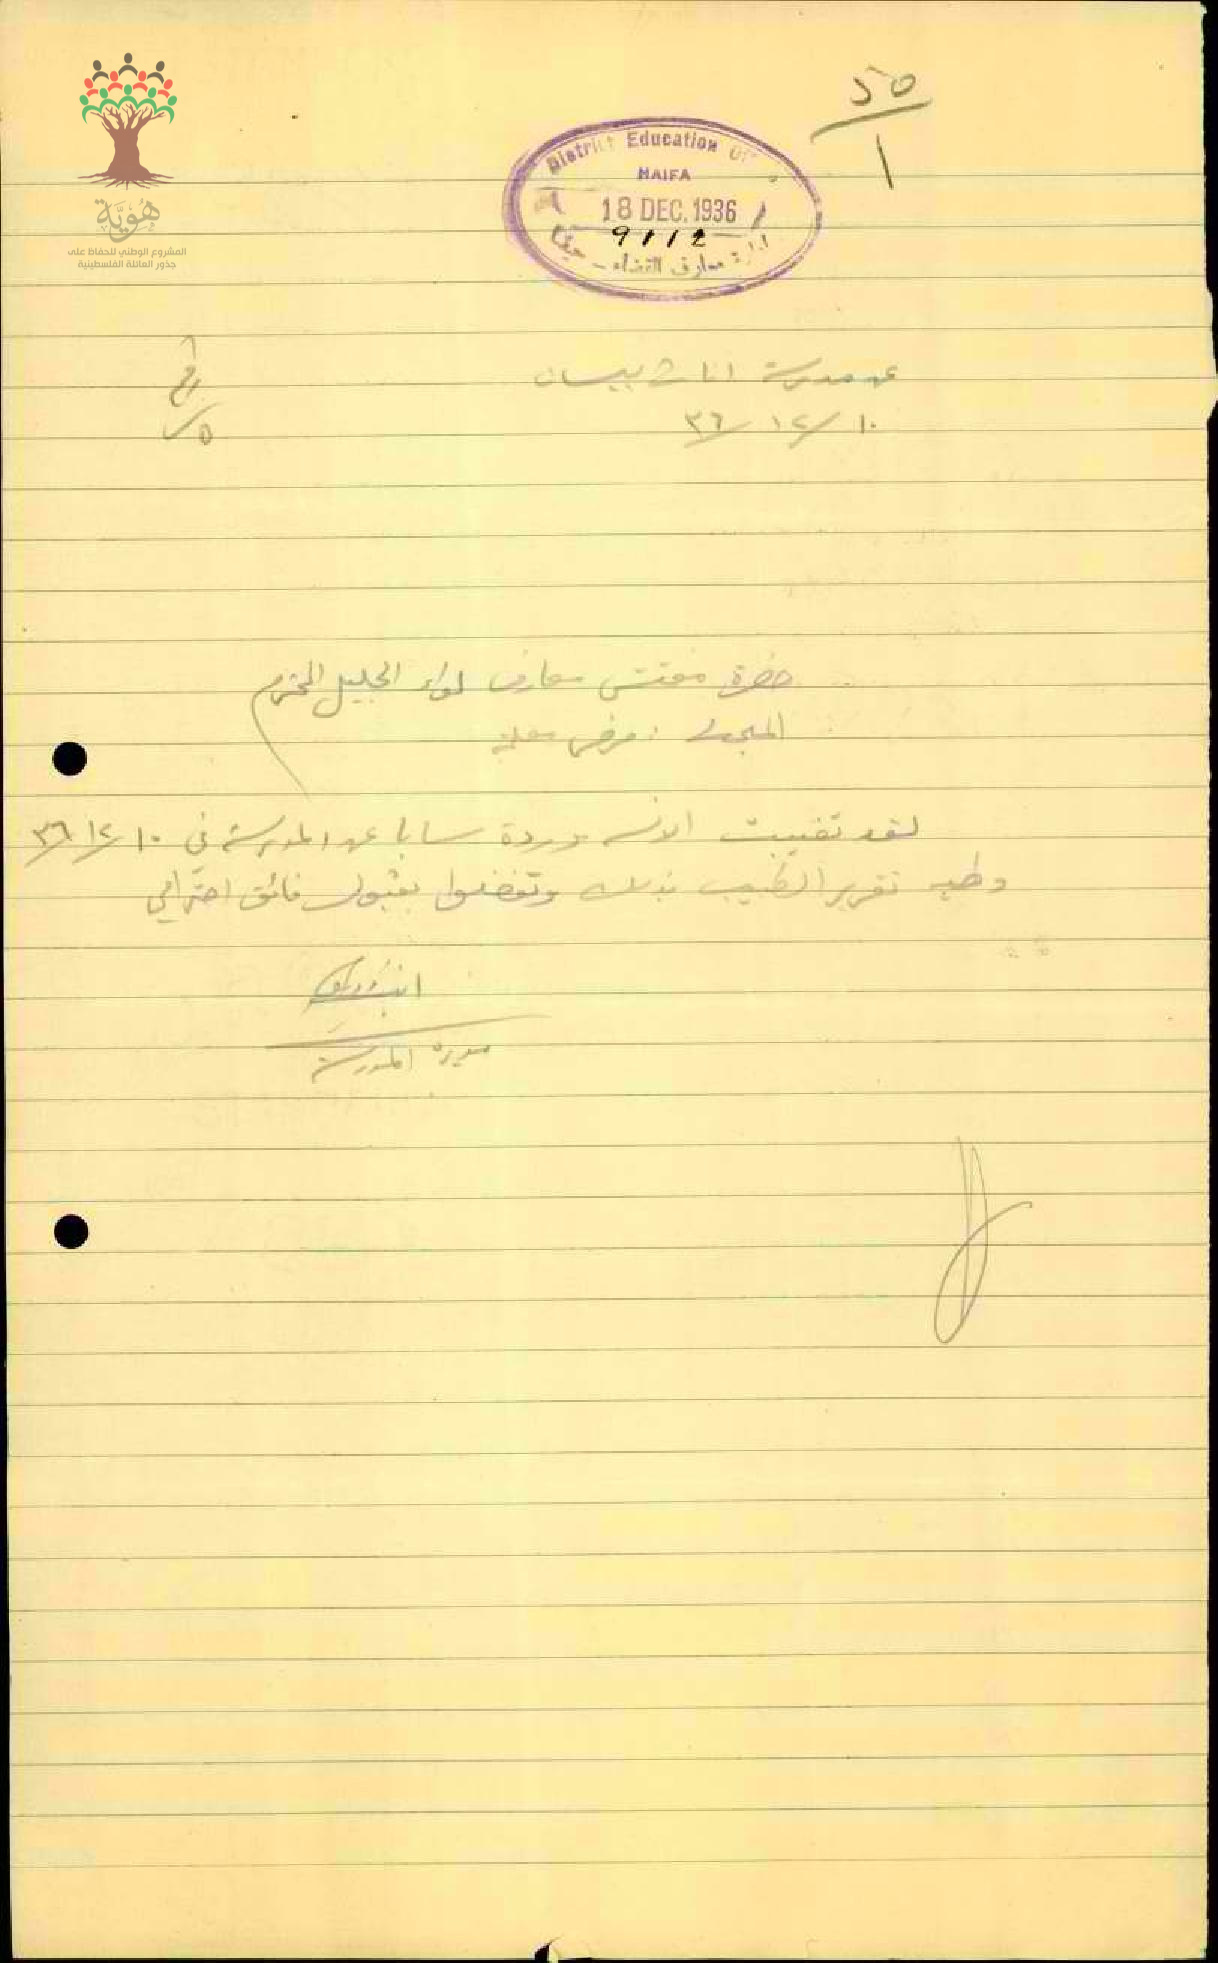 هُوِيَّة
المشروع الوطني للحفاظ على
جذور العائلة الفلسطينية
٥٥
١
District Education
HAIFA
18 DEC. 1936
9112
ادارة معارف القضاء - حيفا
عن مدرسة اناث بيسان
١٠/١٢/٣٦
رقم
٥/
حضرة مفتش معارف لواء الجليل المحترم
المبحث : مرض معلمة
لقد تغيبت الانسه وردة سابا عن المدرسة في ١٠/١٢/٣٦
وطيه تقرير الطبيب بذلك وتفضلوا بقبول فائق احترامي
مديرة المدرسة